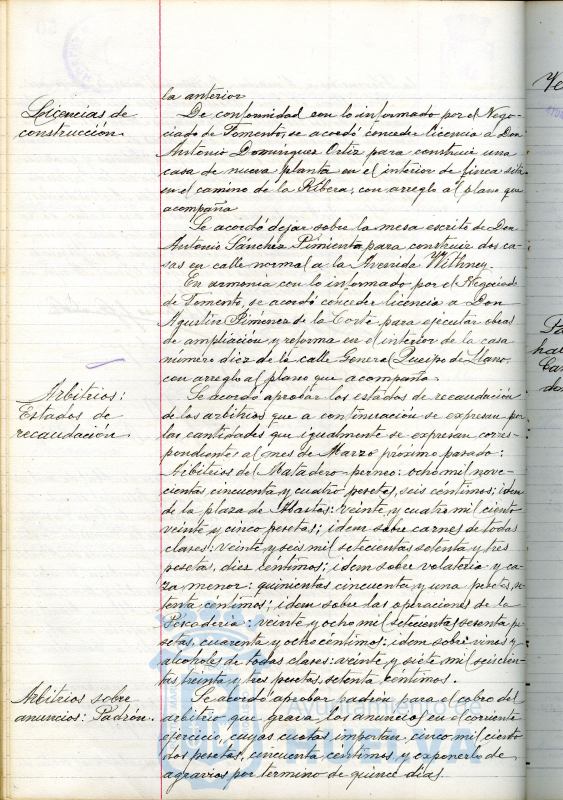 la anterior
Licencias de
construcción.
De conformidad con lo informado por el Nego-
ciado de Fomento, se acordó conceder licencia a Don
Antonio Domínguez Ortiz para construir una
casa de nueva planta en el interior de finca sita
en el camino de la Ribera, con arreglo al plano que
acompaña
Se acordó dejar sobre la mesa escrito de Don
Antonio Sánchez Pimienta para construir dos ca-
sas en calle normal a la Avenida Withney.
En armonía con lo informado por el Negociado
de Fomento, se acordó conceder licencia a Don
Agustín Jiménez de la Corte para ejecutar obras
de ampliación y reforma en el interior de la casa
número diez de la calle General Queipo de Llano,
con arreglo al plano que acompaña.
Arbitrios:
Estados de
recaudación.
Se acordó aprobar los estados de recaudación
de los arbitrios que a continuación se expresan por
las cantidades que igualmente se expresan corres-
pondientes al mes de Marzo próximo pasado:
Arbitrios de Matadero perneo: ocho mil nove-
cientas cincuenta y cuatro pesetas, seis céntimos; idem
de la plaza de Abastos: veinte y cuatro mil ciento
veinte y cinco pesetas; idem sobre carnes de todas
clases: veinte y seis mil setecientas setenta y tres
pesetas, diez céntimos; idem sobre volatería y ca-
za menor: quinientas cincuenta y una pesetas, se-
tenta céntimos; idem sobre las operaciones de la
Pescadería: veinte y ocho mil setecientas setenta pe-
setas, cuarenta y ocho céntimos: idem sobre vinos y
alcoholes de todas clases: veinte y siete mil seiscien-
tas treinta y tres pesetas, setenta céntimos.
Arbitrios sobre
anuncios: Padrón.
Se acordó aprobar padrón para el cobro del
arbitrio que grava los anuncios en el corriente
ejercicio, cuyas cuotas importan cinco mil ciento
dos pesetas, cincuenta céntimos y exponerlo de
agravios por término de quince días.
Ayuntamiento de
HUELVA